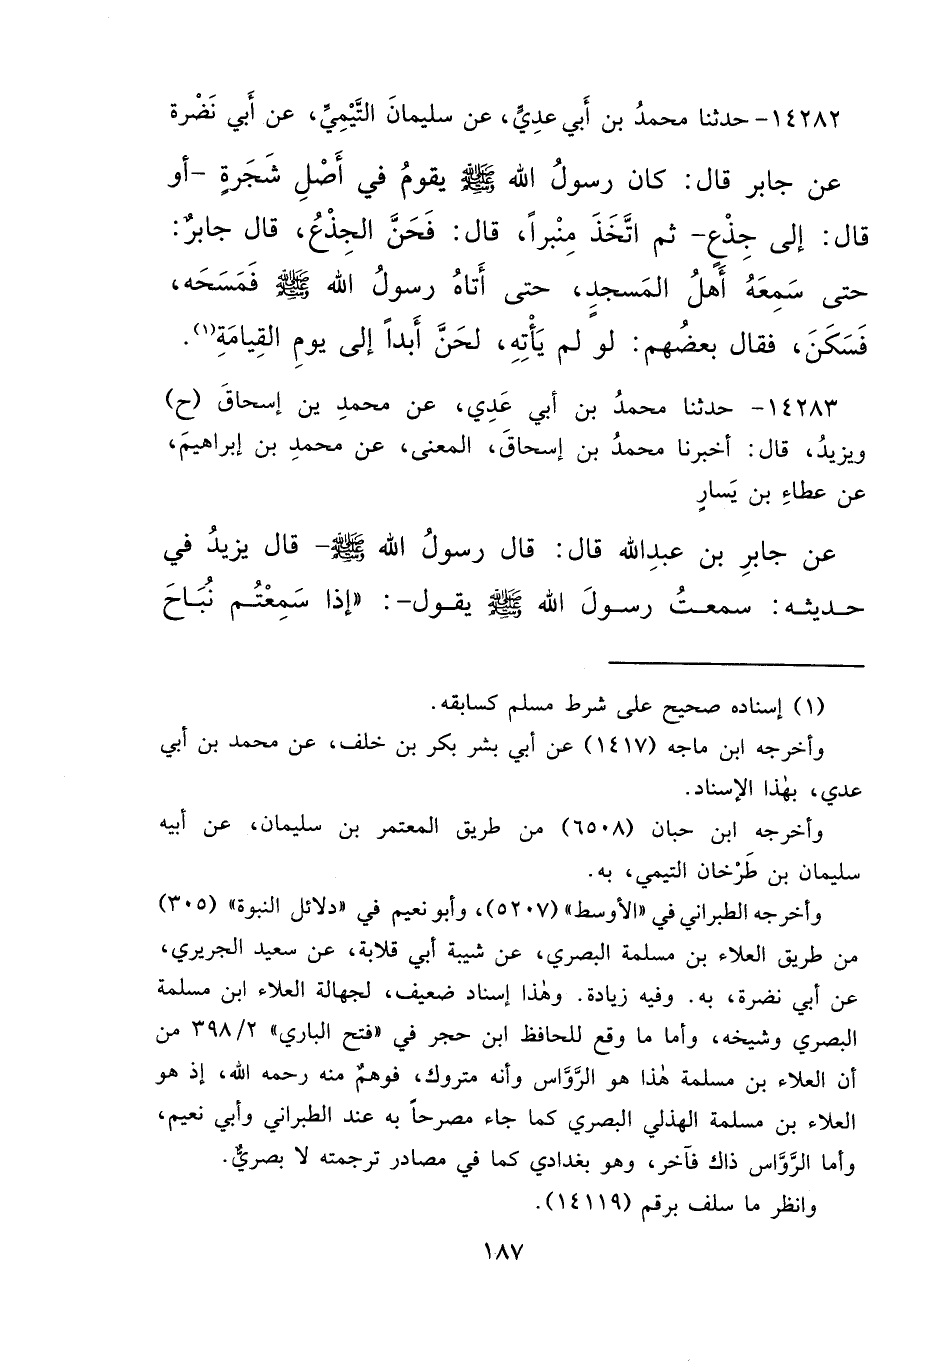 ١٤٢٨٢- حدثنا محمدُ بن أَبي عدِيٍّ، عن سليمانَ التَّيْمِيِّ، عن أَبي نَضْرة
عن جابر قال: كان رسولُ الله ﷺ يقومُ في أَصْلِ شَجَرةٍ -أو
قال: إلى جِذْعٍ- ثم اتَّخَذَ مِنْبراً، قال: فَحَنَّ الجِذْعُ، قال جابرٌ:
حتى سَمِعَهُ أَهلُ المَسجدِ، حتى أَتاهُ رسولُ الله ﷺ فَمَسَحَه،
فَسَكَنَ، فقال بعضُهم: لو لم يَأْتِهِ، لحَنَّ أَبداً إلى يومِ القِيامَةِ(١).
١٤٢٨٣- حدثنا محمدُ بن أبي عَدِي، عن محمدِ ين إسحاقَ (ح)
ويزيدُ، قال: أخبرنا محمدُ بن إسحاقَ، المعنى، عن محمدِ بن إبراهيمَ،
عن عطاءِ بن يَسارٍ
عن جابرِ بن عبدِالله قال: قال رسولُ الله ﷺ- قال يزيدُ في
حديثه: سمعتُ رسولَ الله ﷺ يقول-: «إذا سَمِعْتُم نُبَاحَ
(١) إسناده صحيح على شرط مسلم كسابقه.
وأخرجه ابن ماجه (١٤١٧) عن أبي بشر بكر بن خلف، عن محمد بن أبي
عدي، بهٰذا الإسناد.
وأخرجه ابن حبان (٦٥٠٨) من طريق المعتمر بن سليمان، عن أبيه
سليمان بن طَرْخان التيمي، به.
وأخرجه الطبراني في «الأوسط» (٥٢٠٧)، وأبو نعيم في «دلائل النبوة» (٣٠٥)
من طريق العلاء بن مسلمة البصري، عن شيبة أبي قلابة، عن سعيد الجريري،
عن أبي نضرة، به. وفيه زيادة. وهٰذا إسناد ضعيف، لجهالة العلاء ابن مسلمة
البصري وشيخه، وأما ما وقع للحافظ ابن حجر في «فتح الباري» ٣٩٨/٢ من
أن العلاء بن مسلمة هٰذا هو الرَّوَّاس وأنه متروك، فوهمٌ منه رحمه الله، إذ هو
العلاء بن مسلمة الهذلي البصري كما جاء مصرحاً به عند الطبراني وأبي نعيم،
وأما الرَّوَّاس ذاك فآخر، وهو بغدادي كما في مصادر ترجمته لا بصريٌّ.
وانظر ما سلف برقم (١٤١١٩).
١٨٧